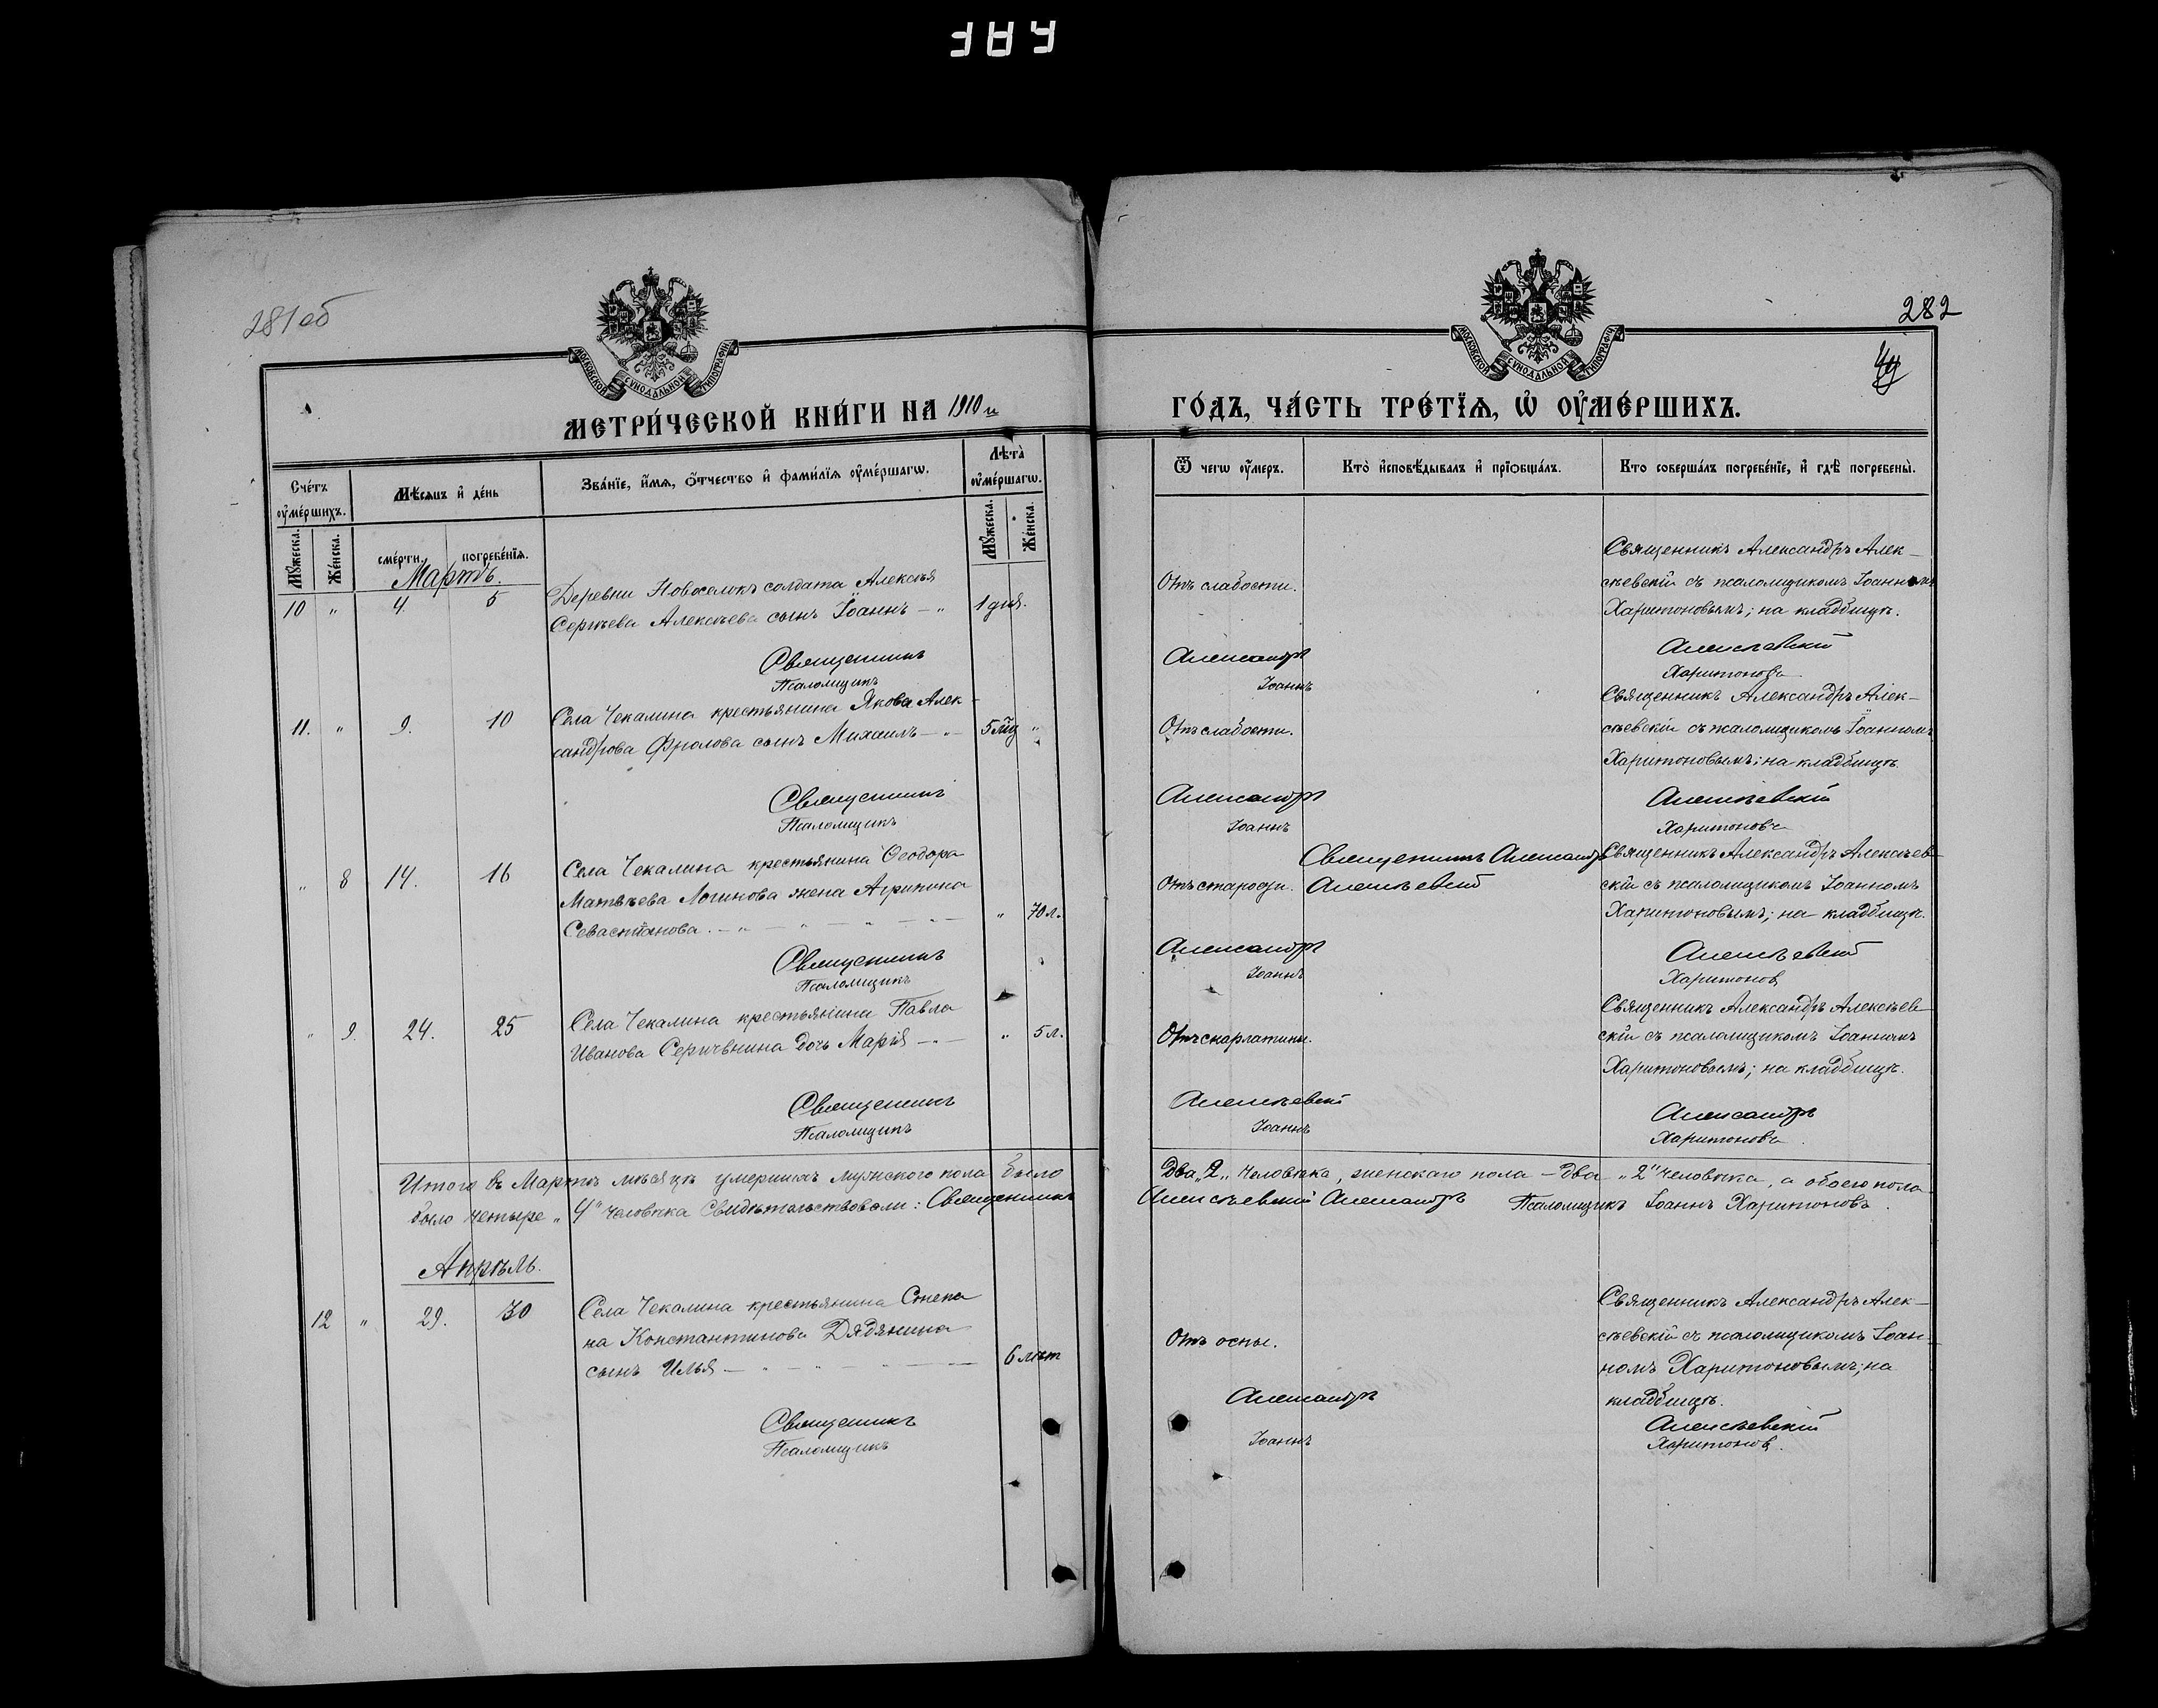 281об
МОСКОВСКОЙ СѴНОДАЛЬНОЙ ТИПОГРАФІИ
МЕТРИ́ЧЕСКОЙ КНИ́ГИ НА 1910 й
Сче́тъ оу҆ме́ршихъ.
Мѣсяцъ и҆ де́нь
Зва́нїе, и҆́мѧ, ѻ҆́тчество и҆ фами́лїѧ оу҆ме́ршагѡ.
Лѣта̀ оу҆ме́ршагѡ.
Мꙋ́жеска.
Же́нска.
сме́рти.
погребе́нїѧ.
Мꙋ́жеска.
Же́нска.
Мартъ.
10 " 4 5 Деревни Новоселокъ солдата Алексѣя
Сергѣева Алексѣева сынъ Іоаннъ — " 1 дня.
Священникъ
Псаломщикъ
11. " 9. 10 Села Чекалина крестьянина Якова Алек-
сандрова Фролова сынъ Михаилъ — " — 5 "
Священникъ
Псаломщикъ
" 8 14. 16 Села Чекалина крестьянина Ѳеодора
Матвѣева Логинова жена Агрипина
Севастіанова. — " — " — " — " 70 л.
Священникъ
Псаломщикъ
" 9. 24. 25 Села Чекалина крестьянина Павла
Иванова дочь Марія — " — " 5 л.
Священникъ
Псаломщикъ
Итого въ Мартѣ мѣсяцѣ умершихъ мужского пола было
было четыре „4" человѣка Свидѣтельствовали: Священникъ
Апрѣль.
12 " 29. 30 Села Чекалина крестьянина Степа
на Константинова Дядянина
сынъ Илья — " — " — " — 6 лѣт
Священникъ
Псаломщикъ
282
МОСКОВСКОЙ СѴНОДАЛЬНОЙ ТИПОГРАФІИ
ГО́ДЪ, ЧА́СТЬ ТРЕ́ТЇѦ, Ѡ҆ ОУ҆МЕ́РШИХЪ.
Ѿ чегѡ оу҆́меръ.
Кто̀ и҆сповѣ́дывалъ и҆ прїѡбща́лъ.
Кто соверша́лъ погребе́нїе, и҆ гдѣ̀ погребены̀.
Отъ слабости.
Священникъ Александръ Алек-
сѣевскій съ псаломщикомъ Іоанномъ
Харитоновымъ; на кладбищѣ.
Александръ Алексѣевскій
Іоаннъ Харитоновъ
Отъ слабости.
Священникъ Александръ Алек-
сѣевскій съ псаломщикомъ Іоанномъ
Харитоновымъ; на кладбищѣ.
Александръ Алексѣевскій
Іоаннъ Харитоновъ
Отъ старости.
Священникъ Александръ
Алексѣевскій
Священникъ Александръ Алексѣев-
скій съ псаломщикомъ Іоанномъ
Харитоновымъ; на кладбищѣ.
Александръ Алексѣевскій
Іоаннъ Харитоновъ
Отъ скарлатины.
Священникъ Александръ Алексѣев-
скій съ псаломщикомъ Іоанномъ
Харитоновымъ; на кладбищѣ.
Алексѣевскій Александръ
Іоаннъ Харитоновъ
Два „2„ человѣка, женскаго пола — два „2" человѣка, а обоего пола
Алексѣевскій Александръ Псаломщикъ Іоаннъ Харитоновъ.
Отъ оспы.
Священникъ Александръ Алек-
сѣевскій съ псаломщикомъ Іоан-
номъ Харитоновымъ; на
кладбищѣ.
Александръ Алексѣевскій
Іоаннъ Харитоновъ.